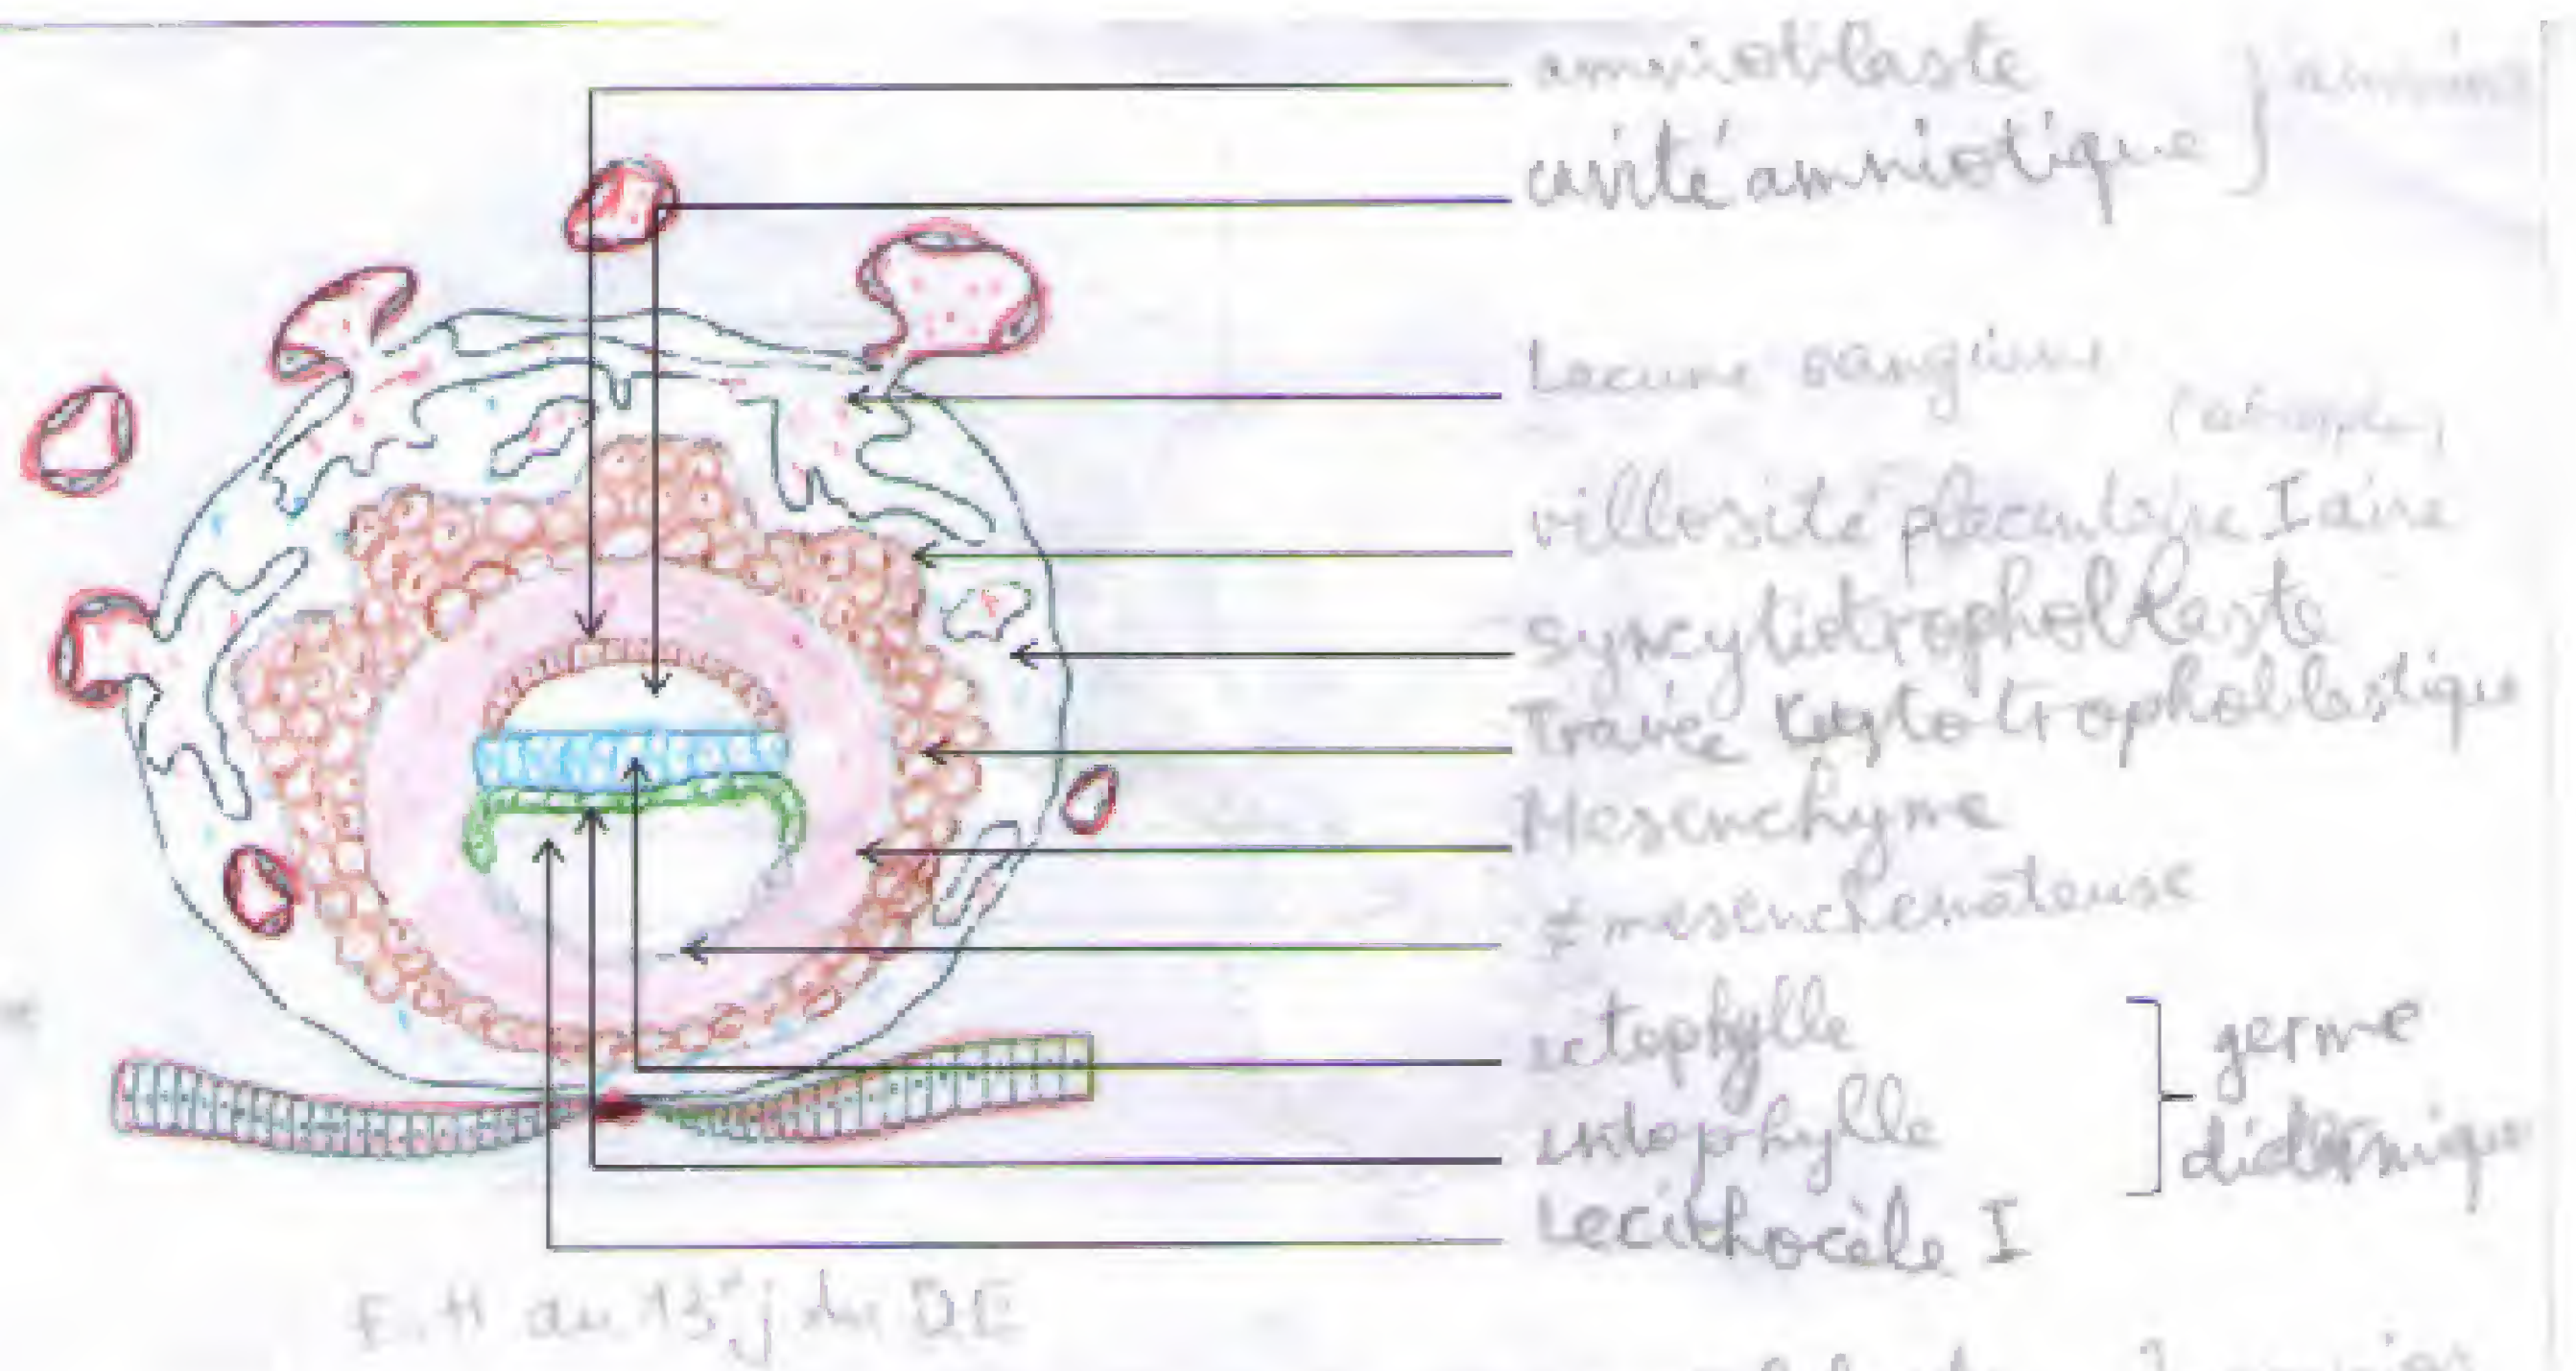 amnioblaste
cavité amniotique
Lacune sanguine
villosité placentaire I aire
syncytiotrophoblaste
Travée cytotrophoblastique
Mesenchyme
≠ mesenchemateuse
ectophylle
entophylle
germe
didermique
Lecithocèle I
E.H au 13e j du DE